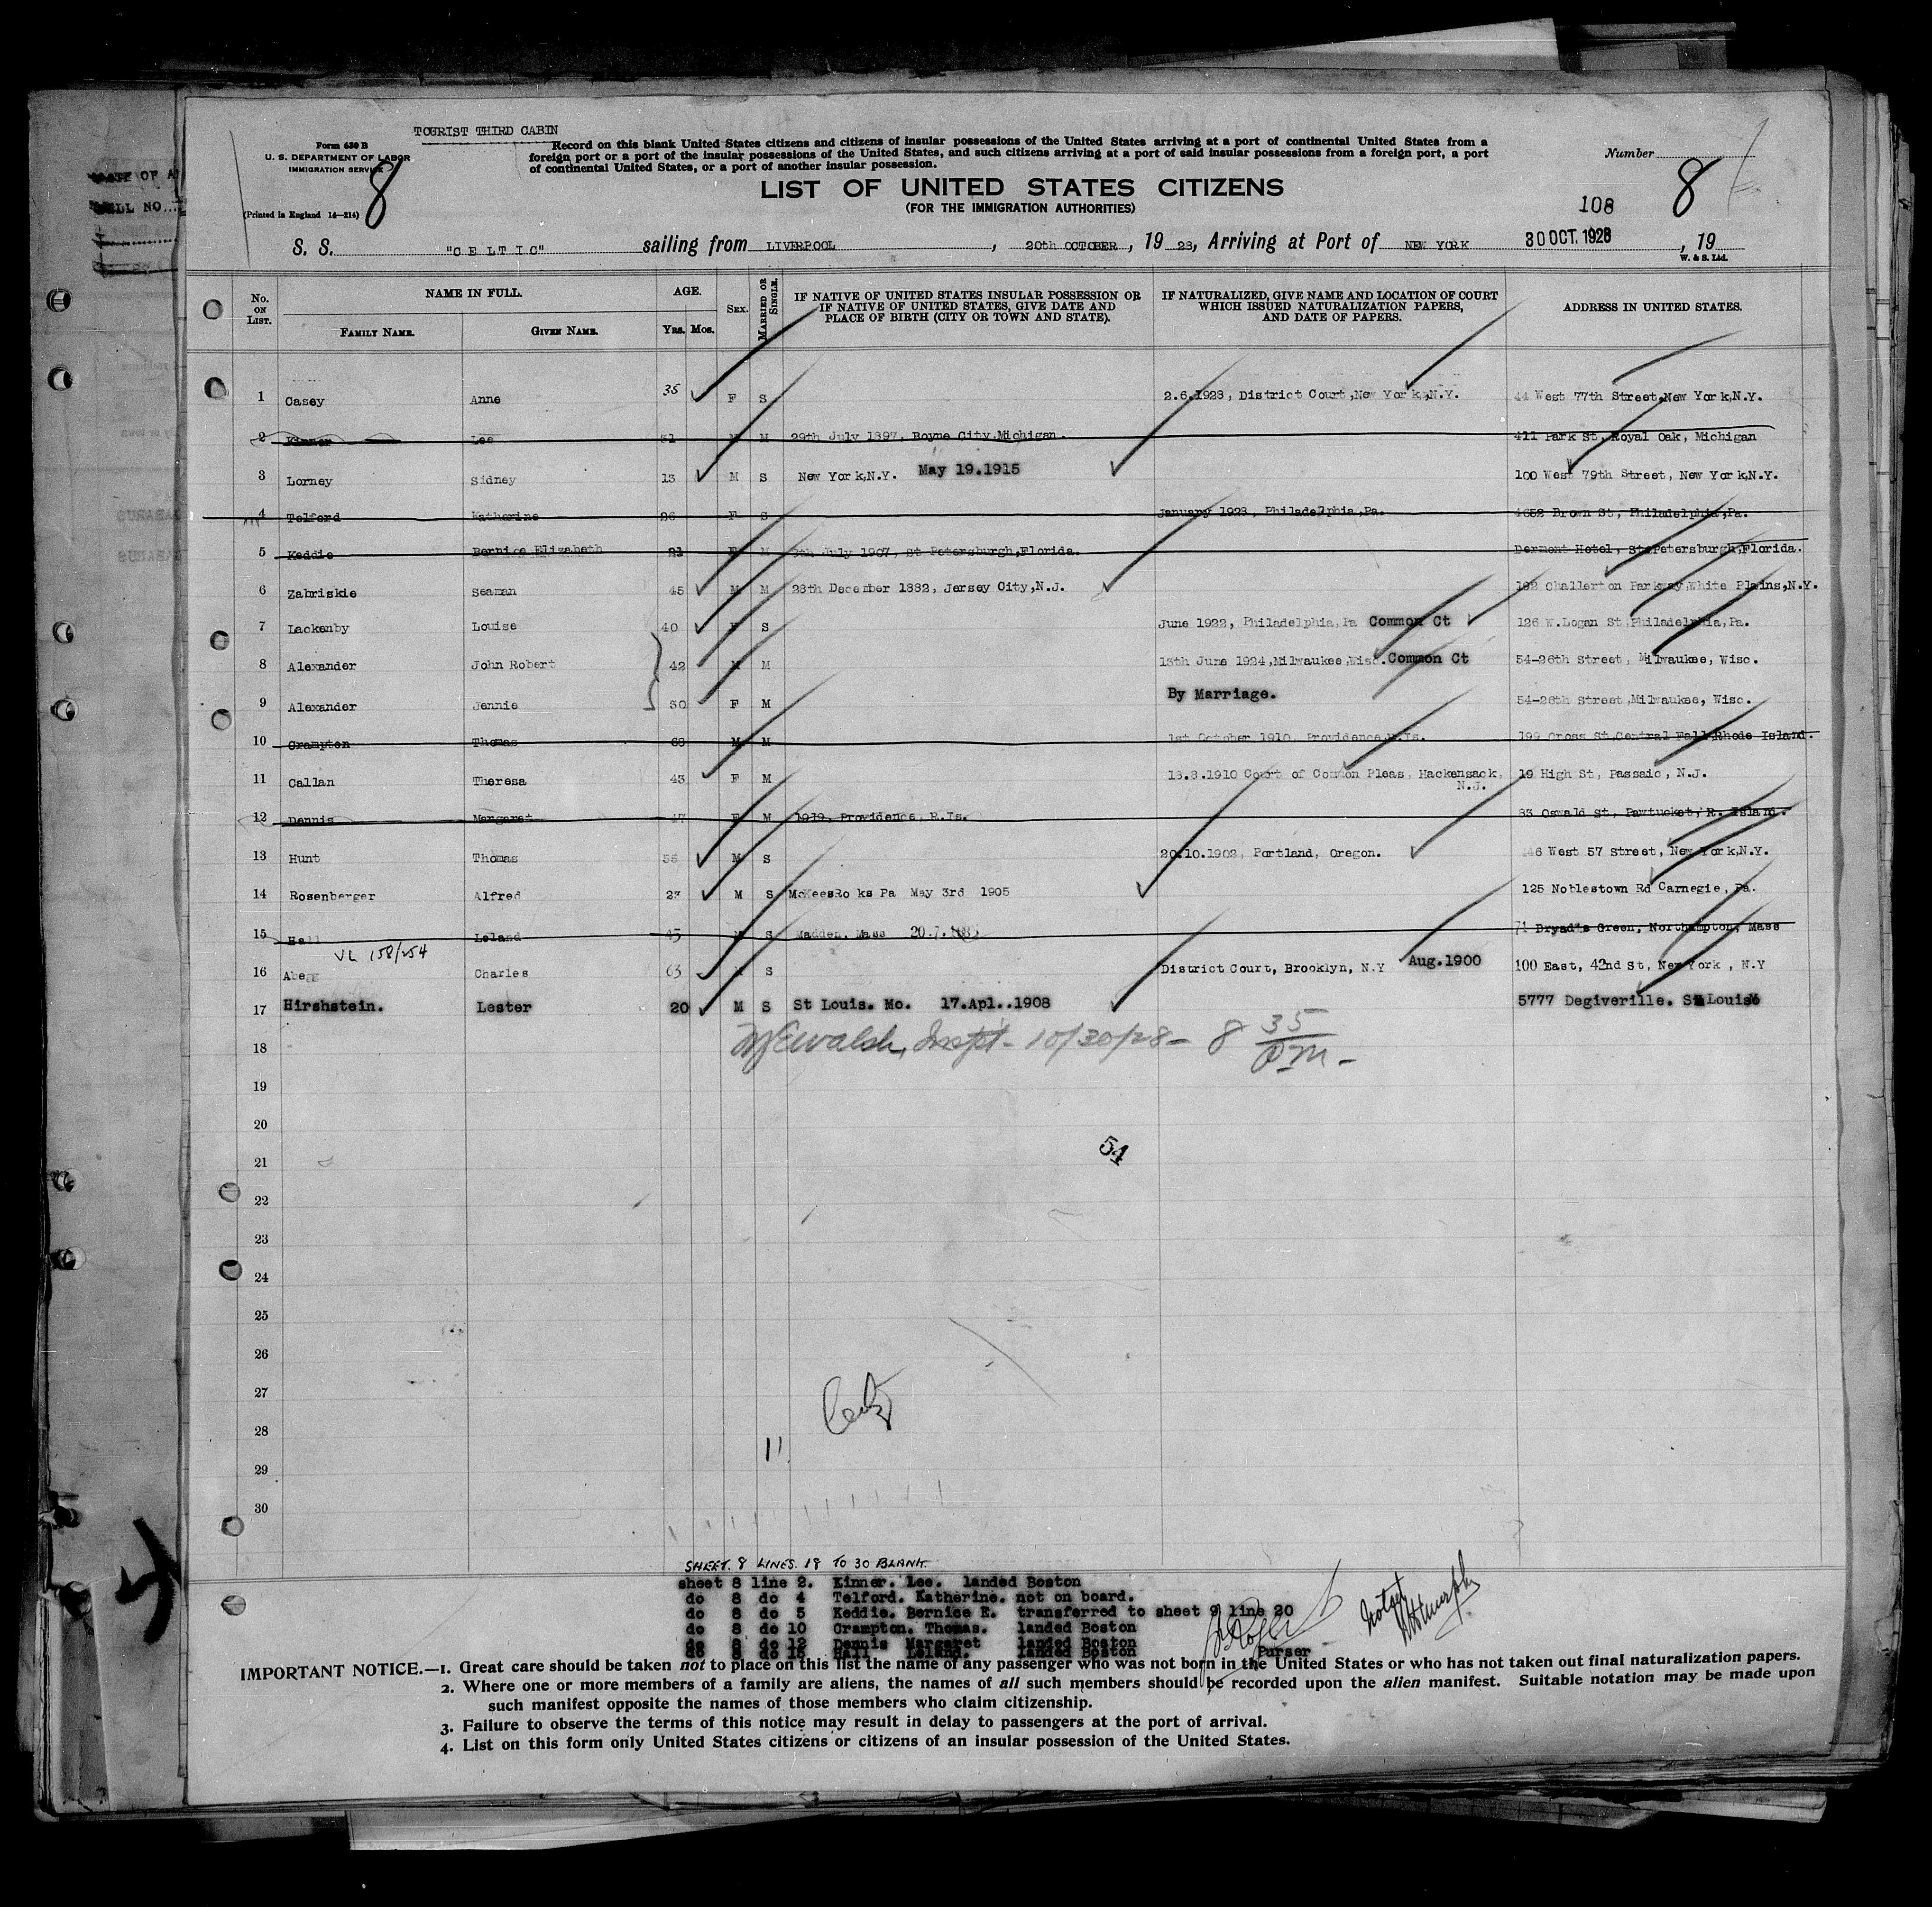 TOURIST THIRD CABIN
Form 630 B
U. S. DEPARTMENT OF LABOR
IMMIGRATION SERVICE
8
(Printed in England 14—214)
Record on this blank United States citizens and citizens of insular possessions of the United States arriving at a port of continental United States from a
foreign port or a port of the insular possessions of the United States, and such citizens arriving at a port of said insular possessions from a foreign port, a port
of continental United States, or a port of another insular possession.
Number
8
LIST OF UNITED STATES CITIZENS
(FOR THE IMMIGRATION AUTHORITIES)
108
S. S. "CELTIC" sailing from LIVERPOOL, 20th OCTOBER, 19 28, Arriving at Port of NEW YORK 30 OCT. 1928, 19
W. & S. Ltd.
No. ON LIST. NAME IN FULL. AGE. SEX. MARRIED OR SINGLE. IF NATIVE OF UNITED STATES INSULAR POSSESSION OR IF NATIVE OF UNITED STATES, GIVE DATE AND PLACE OF BIRTH (CITY OR TOWN AND STATE). IF NATURALIZED, GIVE NAME AND LOCATION OF COURT WHICH ISSUED NATURALIZATION PAPERS, AND DATE OF PAPERS. ADDRESS IN UNITED STATES.
FAMILY NAME. GIVEN NAME. YRS. MOS.
1 Casey Anne 35 F S 2.6.1928, District Court, New York, N.Y. 44 West 77th Street, New York, N.Y.
2 Kinner Lee 31 M M 29th July 1897, Boyne City, Michigan. 411 Park St, Royal Oak, Michigan
3 Lorney Sidney 13 M S New York, N.Y. May 19.1915 100 West 79th Street, New York, N.Y.
4 Telford Katherine 26 F S January 1928, Philadelphia, Pa. 4652 Brown St, Philadelphia, Pa.
5 Keddie Bernice Elizabeth 21 F M July 1907, St Petersburgh, Florida. Dermont Hotel, St Petersburgh, Florida.
6 Zabriskie Seaman 45 M M 28th December 1882, Jersey City, N.J. 192 Challerton Parkway, White Plains, N.Y.
7 Lackenby Louise 40 F S June 1922, Philadelphia, Pa Common Ct 126 W. Logan St, Philadelphia, Pa.
8 Alexander John Robert 42 M M 13th June 1924, Milwaukee, Wisc. Common Ct 54-26th Street, Milwaukee, Wisc.
9 Alexander Jennie 30 F M By Marriage. 54-26th Street, Milwaukee, Wisc.
10 Crampton Thomas 60 M M 1st October 1910, Providence, R.Is. 199 Cross St, Central Fall, Rhode Island.
11 Callan Theresa 43 F M 18.8.1910 Court of Common Pleas, Hackensack, N.J. 19 High St, Passaic, N.J.
12 Dennis Margaret 47 F M 1919, Providence, R.Is. 83 Oswald St, Pawtucket, R. Island.
13 Hunt Thomas M S 20.10.1902, Portland, Oregon. West 57 Street, New York, N.Y.
14 Rosenberger Alfred 23 M S McKeesRo ks Pa May 3rd 1905 125 Noblestown Rd Carnegie, Pa.
15 Hall Leland 45 M S Madden, Mass 20.7.1883 71 Dryad's Green, Northampton, Mass
VL 158/254
16 Abegg Charles 63 M S District Court, Brooklyn, N.Y Aug.1900 100 East, 42nd St, New York, N.Y
17 Hirshstein. Lester 20 M S St Louis. Mo. 17.Apl..1908 5777 Degiverille. St Louis
18 Walsh, Insp't - 10/30/28 - 8 35 PM -
19
20
54
21
22
23
24
25
26
27
28
11
29
30
SHEET. 8 LINES. 18 TO 30 BLANK.
sheet 8 line 2. Kinner. Lee. landed Boston
do 8 do 4 Telford. Katherine. not on board.
do 8 do 5 Keddie. Bernice E. transferred to sheet 9 line 20
do 8 do 10 Crampton. Thomas. landed Boston
do 8 do 12 Dennis Margaret landed Boston
do 8 do 15 Hall Leland. landed Boston
Purser
IMPORTANT NOTICE.—1. Great care should be taken not to place on this list the name of any passenger who was not born in the United States or who has not taken out final naturalization papers.
2. Where one or more members of a family are aliens, the names of all such members should be recorded upon the alien manifest. Suitable notation may be made upon
such manifest opposite the names of those members who claim citizenship.
3. Failure to observe the terms of this notice may result in delay to passengers at the port of arrival.
4. List on this form only United States citizens or citizens of an insular possession of the United States.